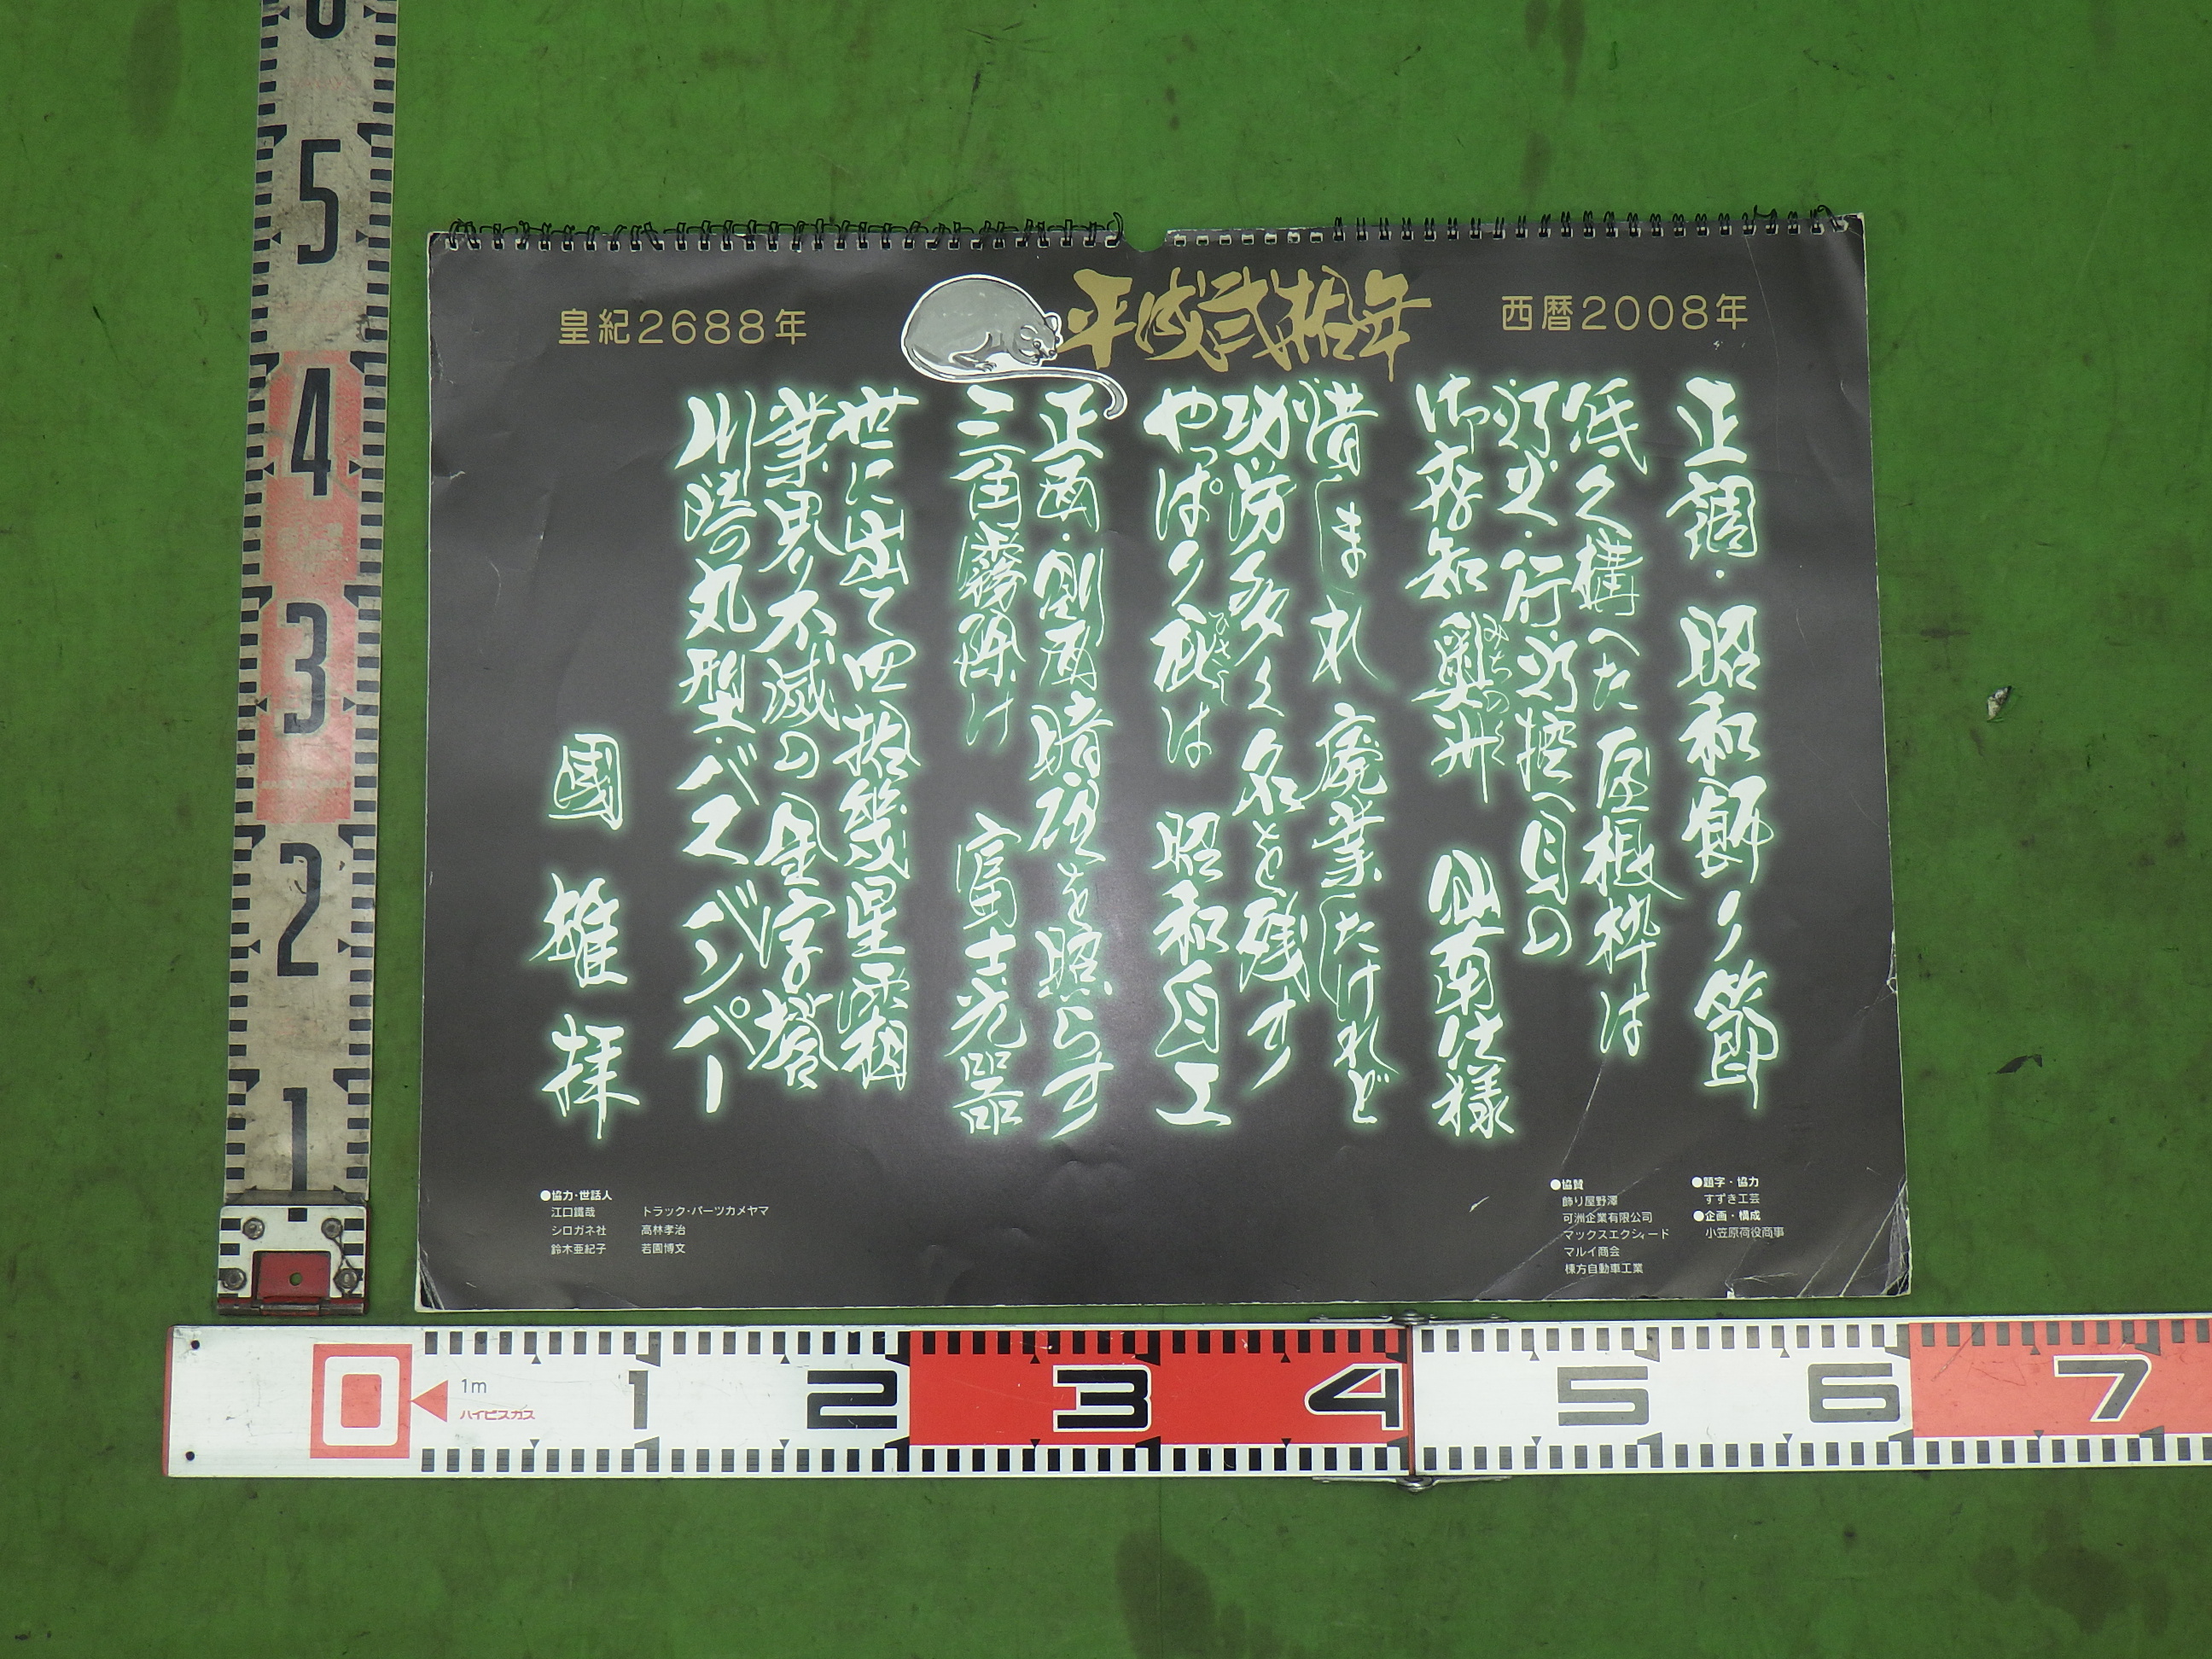 皇紀2688年
平成弐拾年
西暦2008年
正調・昭和飾り節
低く構へた屋根枠は
灯火・行灯控へ目の
御存知奥州 仙南仕様
みちのく
惜しまれ廃業したけれど
功労多く名を残す
やっぱり庇は 昭和自工
ひさし
正面・側面・暗夜を照らす
三角霧除け 富士光器
世に出て四拾幾星霜
筆界不滅の金字塔
川崎の丸型・バス・バンパー
國雄拝
●協力・世話人
江口鐵哉
シロガネ社
鈴木亜紀子
トラック・パーツカメヤマ
高林孝治
若園博文
●協賛
飾り屋野澤
可洲企業有限公司
マックスエクシィード
マルイ商会
棟方自動車工業
●題字・協力
すずき工芸
●企画・構成
小笠原荷役商事
6
5
4
3
2
1
0
1m
ハイビスカス
1
2
3
4
5
6
7